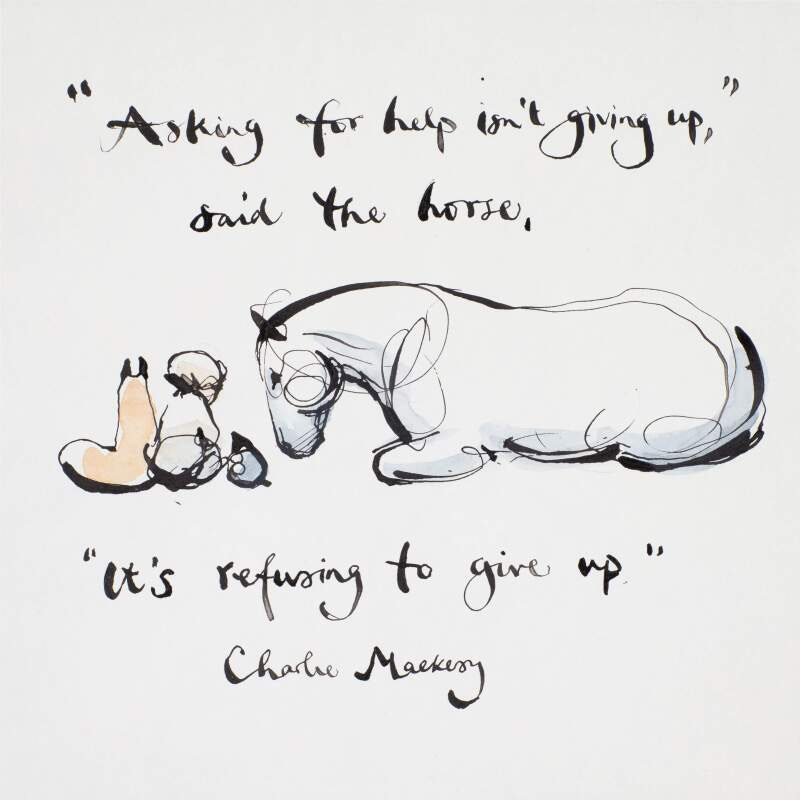 "Asking for help isn't giving up,"
said the horse.
"It's refusing to give up."
Charlie Mackesy